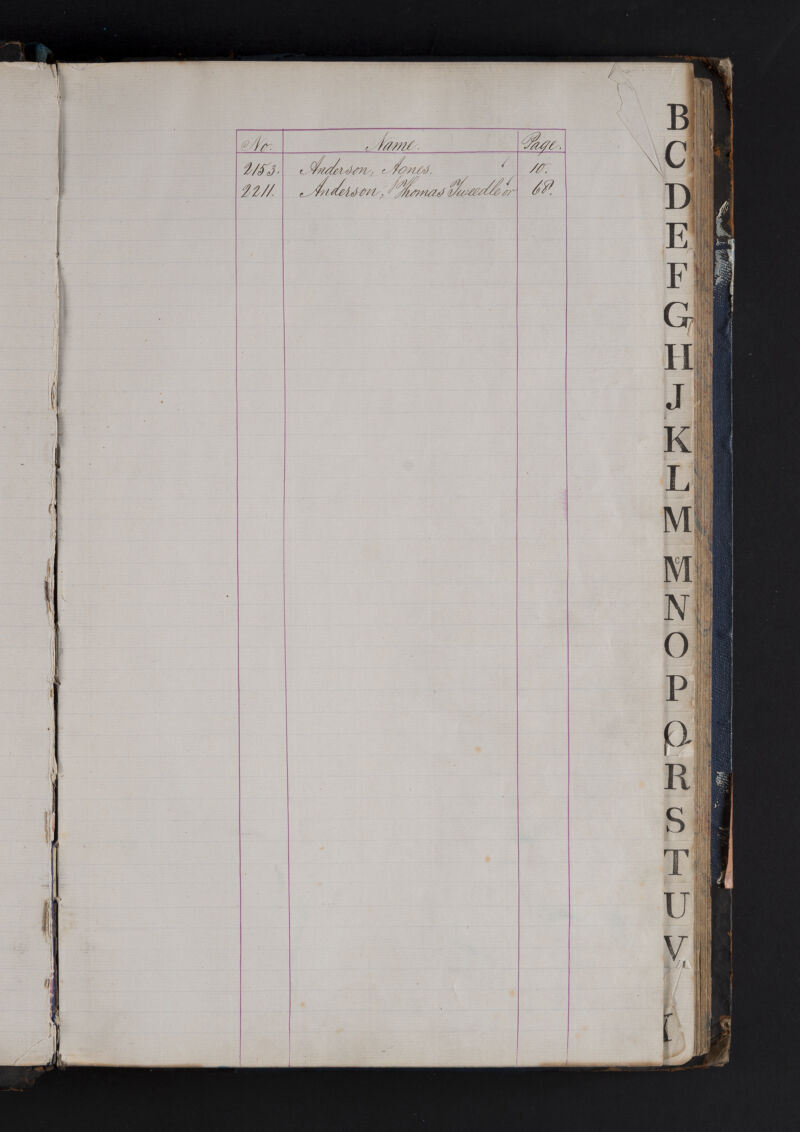 No. Name. Page.
2153. Anderson, Agnes. 10.
2211. Anderson, Thomas Tweedle or 68.
B
C
D
E
F
G
H
J
K
L
M
Mc
N
O
P
Q
R
S
T
U
V